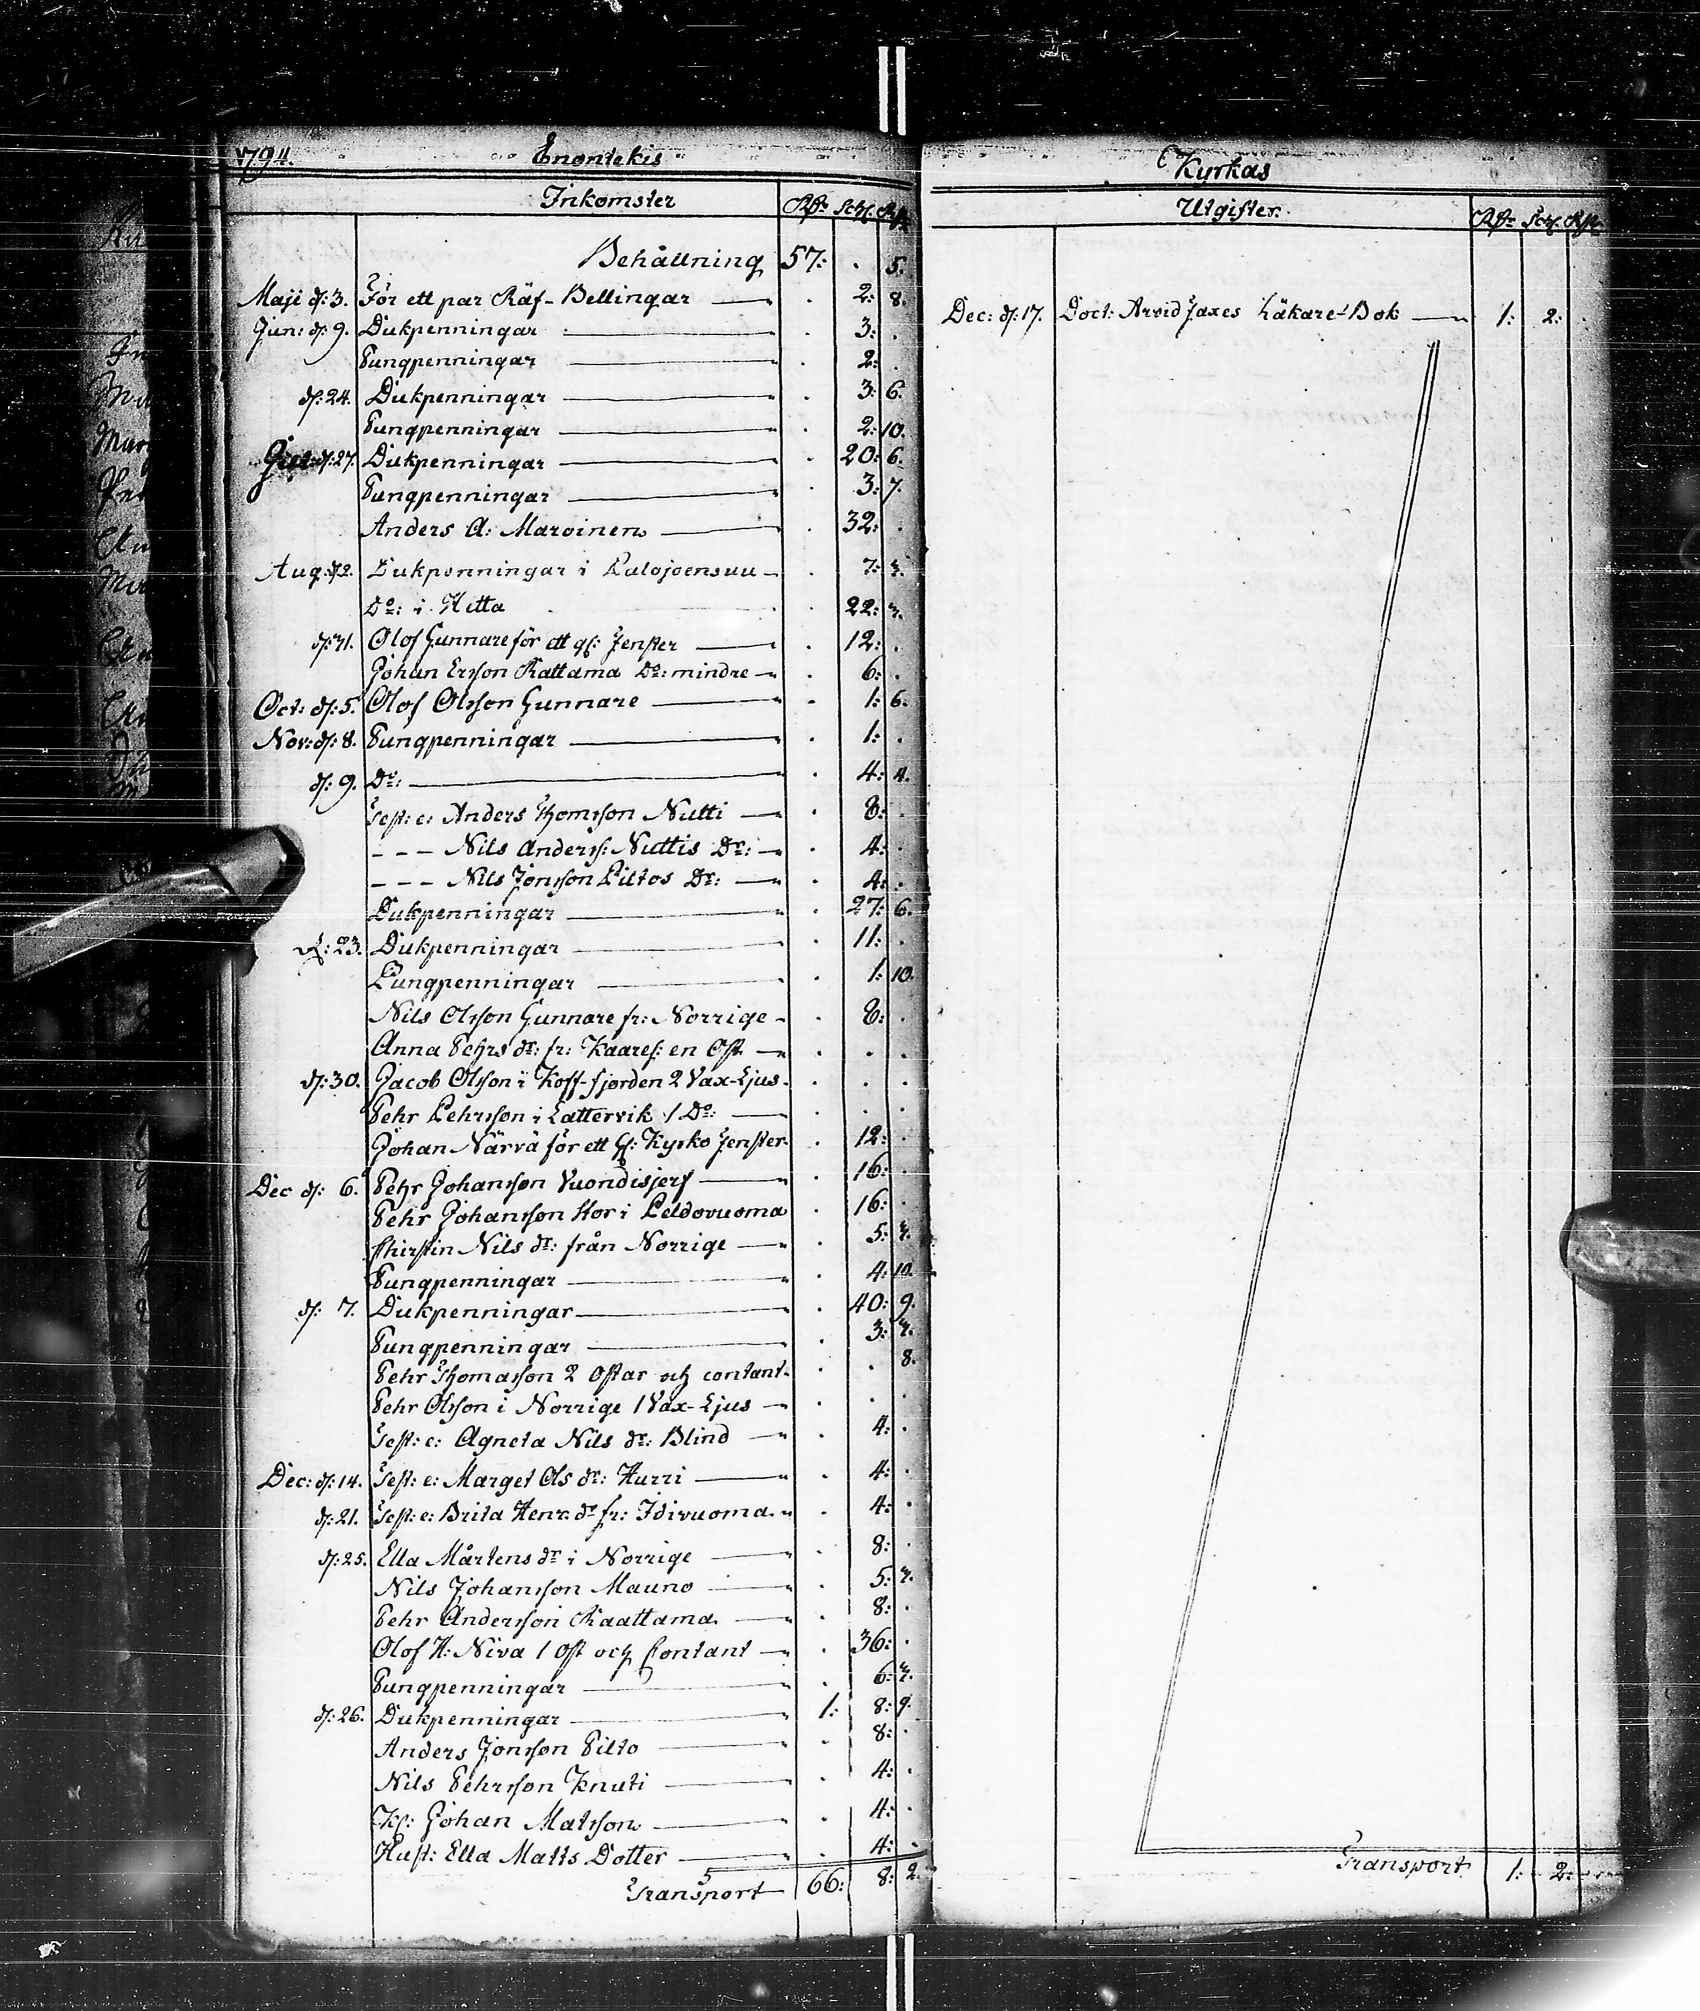 1794. Enontekis
Inkomster Rdr Sch. Rst.
Behållning 57: . 5.
Maji d: 3. För ett par Räf-Bellingar . 2: 8.
Jun: d: 9. Dukpenningar . 3: .
Pungpenningar . 2: .
d: 24. Dukpenningar . 3: 6.
Pungpenningar . 2: 10.
d: 27. Dukpenningar . 20: 6.
Pungpenningar . 3: 7.
Anders A: Maroinen . 32: .
Aug: d: 2. Dukpenningar i Palojoensuu . 7: 3.
Do: i Hetta . 22: 3.
d: 31. Olof Gunnare för ett gl: Fenster . 12: .
Johan Ersson Rattama Do: mindre . 6: .
Oct: d: 5. Olof Olsson Gunnare . 1: 6.
Nov: d: 8. Pungpenningar . 1: .
d: 9. Do: . 4: 4.
Test: e: Anders Thomsson Nutti . 8: .
- - - Nils Anders: Nuttis Dr: . 4: .
- - - Nils Jonsson Piltos Dr: . 4: .
Dukpenningar . 27: 6.
d: 23. Dukpenningar . 11: .
Pungpenningar . 1: 10.
Nils Olsson Gunnare fr: Norrige . 8: .
Anna Pehrs dr: fr: Kaares: en Ost . . .
d: 30. Jacob Olsson i Koff-fjorden 2 Vax-Ljus . . .
Pehr Pehrsson i Lattervik 1 Do: . . .
Johan Närvä för ett gl: Kyrko Fenster . 12: .
Dec d: 6. Pehr Johansson Vuondisjerf . 16: .
Pehr Johansson Hor i Peldovuoma . 16: .
Chirstin Nils dr: från Norrige . 5: 3.
Pungpenningar . 4: 10.
d: 7. Dukpenningar . 40: 9.
Pungpenningar . 3: 3.
Pehr Thomasson 2 Ostar och contant . . 8.
Pehr Olsson i Norrige 1 Vax-Ljus . . .
Test: e: Agneta Nils dr: Blind . 4: .
Dec: d: 14. Test: e: Marget Ols dr: Hurri . 4: .
d: 21. Test: e: Brita Henr: dr fr: Idivuoma . 4: .
d: 25. Ella Mårtens dr i Norrige . 8: .
Nils Johansson Mauno . 5: 3.
Pehr Andersson Raattama . 8: .
Olof H: Niva 1 Ost och Contant . 36: .
Pungpenningar . 6: 3.
d: 26. Dukpenningar 1: 8: 9.
Anders Jonsson Pilto . 8: .
Nils Pehrsson Knuti . 4: .
Kl: Johan Matsson . 4: .
Hust: Ella Matts Dotter . 4: .
Transport 66: 8: 2.
Kyrkas
Utgifter. Rdr Sch. Rst.
Dec: d: 17. Doct: Arvid Faxes Läkare-Bok 1: 2: .
Transport 1: 2: